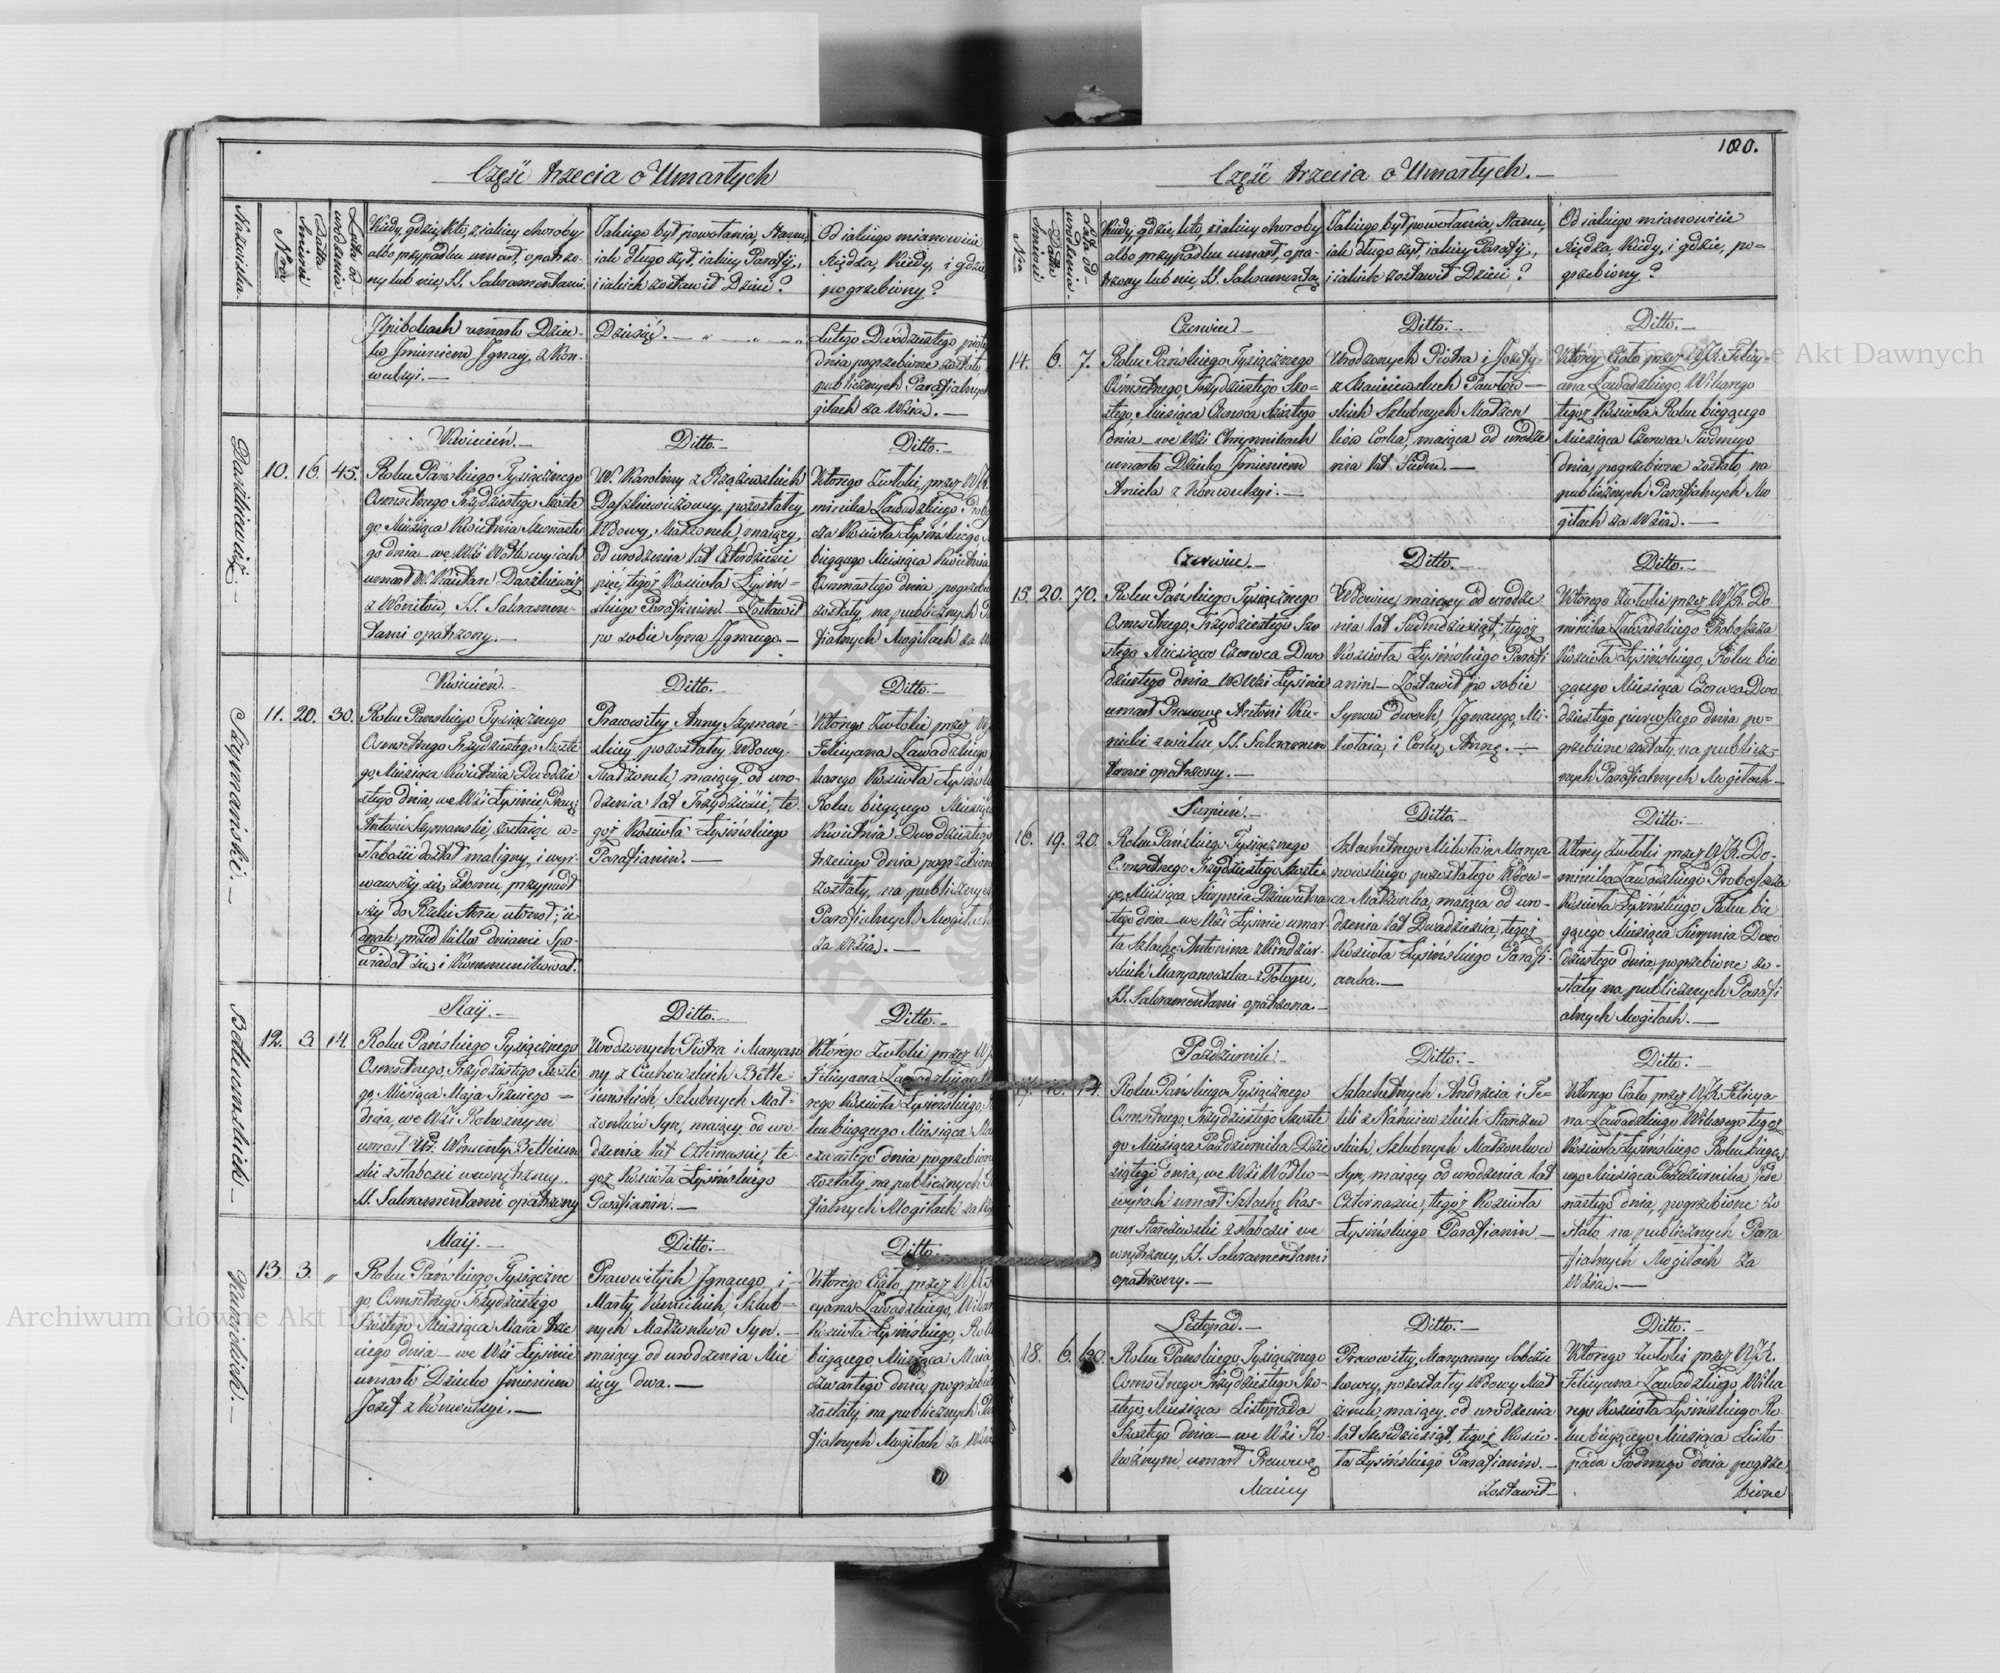 Część trzecia o Umarłych
Nazwiska.
Nro
Data Śmierci
Lata od urodzenia.
Kiedy, gdzie, kto, z jakiey choroby
albo przypadku umarł, opatrzo-
ny lub nie, SS. Sakramentami.
Jakiego był powołania, Stanu,
iak długo żył, iakiey Parafij,
i iakich zostawił Dzieci?
Od iakiego mianowicie
Xiędza, Kiedy, i gdzie
pogrzebiony?
umarło Dziec-
ko Jmieniem Ignacy, z Kon-
wulsyi.—
Dziesięć.—
Lutego Dwódziestego piąte
dnia pogrzebione zostało
publicznych Parafialnych
gitach za Wsią.—
Daszkiewicz.—
10. 16. 45.
Kwiecień.—
Roku Pańskiego Tysiącznego
Osmsetnego Trzydziestego Szoste
go, Miesiąca Kwietnia Szesnaste-
go dnia we Wsi Wółkowyiach
umarł W. Kaietan Daszkiewicz
z Womitow, SS. Sakramen-
tami opatrzony.—
Ditto.—
W. Karoliny z Rząśzewskich
Daszkiewiczowey, pozostałey
Wdowy, Małżonek, maiący,
od urodzenia lat Czterdzieści
pięć, tegoż Kościoła Łysiń-
skiego Parafianin. Zostawił
po sobie Syna Ignacego.—
Ditto.—
Którego Zwłoki, przez WX.
minika Zawadzkiego Probo
cza Kościoła Łysińskiego
biegącego Miesiąca Kwietnia
Osmnastego dnia, pogrzebio
zostały, na publicznych P
fialnych Mogiłach za W
Szymański.—
11. 20. 30.
Kwiecień.—
Roku Pańskiego Tysiącznego
Osmsetnego Trzydziestego Szoste
go, Miesiąca Kwietnia Dwudzie
stego dnia, we Wsi Łysinie, Praw
Antoni Szymański, zostaiąc w-
słabości dostał maligny, i wyr-
wawszy się z domu, przypadł
szy do Rzeki Horu utonął, ie
dnak, przed kilka dniami Spo-
wiadał się, i Kommunikował.
Ditto.—
Prawowitey Anny Szymań-
skiey pozostałey Wdowy
Małżonek, maiący, od uro-
dzenia lat Trzydzieści, te-
goż Kościoła Łysińskiego
Parafianin.—
Ditto.—
Którego Zwłoki przez W
Felicyana Zawadzkiego
karego Kościoła Łysińs
Roku biegącego Miesiąca
Kwietnia Dwódziestego
trzeciego dnia pogrzebione
zostały, na publicznych
Parafialnych Mogiłach
za Wsią.—
Bettleiemskich.—
12. 3. 14.
Maij.—
Roku Pańskiego Tysiącznego
Osmsetnego, Trzydziestego Szoste
go, Miesiąca Maja Trzeciego =
dnia, we Wsi Kotwznym
umarł Ur: Wincenty Bettleiem
ski z słabości wewnętrzney.
SS. Sakramentami opatrzony
Ditto.—
Urodzonych Piotra i Maryan
ny z Bettle
iemskich, Szlubnych Mał-
żonków Syn, maiący od uro
dzenia lat Czternaście, te-
goż Kościoła Łysińskiego
Parafianin.—
Ditto.—
Którego Zwłoki przez WX
Felicyana Zawadzkiego W
rego Kościoła Łysińskiego, R
ku biegącego Miesiąca Ma
czwartego dnia pogrzebione
zostały, na publicznych P
fialnych Mogiłach za W
13. 3. "
Maij.—
Roku Pańskiego, Tysiączne
go, Osmsetnego Trzydziestego
Szóstego Miesiąca Maia trze
ciego dnia — we Wsi Łysinie
umarło Dziecko Jmieniem
Józef z Konwulsyi.—
Ditto.—
Prawowitych Ignacego i-
Marty Kunickich Szlub-
nych Małżonków Syn.—
maiący, od urodzenia Mie
sięcy dwa.—
Ditto.—
Którego Ciało, przez WX
cyana Zawadzkiego, Wikar
Kościoła Łysińskiego, Rok
biegącego, Miesiąca Maia
czwartego dnia pogrzebio
zostały, na publicznych Pa
fialnych Mogiłach za Wsią
100.
Część trzecia o Umarłych.—
Nro
Data Śmierci
Lata od urodzenia.
Kiedy, gdzie, kto, z iakiey choroby
albo przypadku umarł, opa-
trzony lub nie, SS. Sakramentą
Jakiego był powołania, Stanu,
iak długo żył, iakiey Parafij,
i iakich zostawił Dzieci?
Od iakiego mianowicie
Xiędza, Kiedy, i gdzie, po-
grzebiony?
14. 6. 7.
Czerwiec—
Roku Pańskiego Tysiącznego
Osmsetnego, Trzydziestego Szo-
stego, Miesiąca Czerwca Szóstego
dnia — we Wsi Chrynnikach
umarło Dziecko Jmieniem
Aniela z Konwulsyi.—
Ditto.—
Urodzonych Piotra i Józefy
z Pawłow-
skich Szlubnych Małżon
ków Córka, maiąca od urodze
nia lat Siedem.—
Ditto.—
Którey Ciało przez WX. Felicy-
ana Zawadzkiego, Wikarego
tegoż Kościoła Roku biegącego
Miesiąca Czerwca Siódmego
dnia, pogrzebione zostało, na
publicznych Parafialnych Mo
giłach za Wsią.—
15. 20. 70.
Czerwiec.—
Roku Pańskiego Tysiącznego
Osmsetnego, Trzydziestego Szo
stego Miesiąca Czerwca Dwu
dziestego dnia — we Wsi Łysinie
umarł Prawowę Antoni Ku-
nicki z wieku SS. Sakramen
tami opatrzony.—
Ditto.—
Wdowiec, maiący od urodze
nia lat Siedmdziesiąt, tegoż
Kościoła Łysińskiego Parafi
anin — Zostawił po sobie
Synow dwoch, Ignacego, Mi-
kołaia, i Córkę Annę.—
Ditto.—
Którego Zwłoki przez WX. Do
minika Zawadzkiego Proboszcza
Kościoła Łysińskiego, Roku bie
gącego Miesiąca Czerwca Dwu
dziestego pierwszego dnia po-
grzebione zostały, na publicz-
nych Parafialnych Mogiłach—
16. 19. 20.
Sierpień.—
Roku Pańskiego Tysiącznego
Osmsetnego Trzydziestego Szoste
go, Miesiąca Sierpnia Dziewiętna
stego dnia — we Wsi Łysinie umar
ła Szlachę. Antonina z
skich Maryanowska z Pologu,
SS. Sakramentami opatrzona.—
Ditto.—
Szlachetnego Mikołaia Marya-
nowskiego pozostałego Wdow-
ca Małżonka, maiąca od uro-
dzenia lat Dwadzieścia, tegoż
Kościoła Łysińskiego Parafi-
anka.—
Ditto.—
Którey Zwłoki przez WX. Do-
minika Zawadzkiego Proboszcza
Kościoła Łysińskiego, Roku bie
gącego Miesiąca Sierpnia Dwó
dziestego dnia, pogrzebione zo-
stały na publicznych Parafi
alnych Mogiłach.—
17. 10. 14.
Październik.—
Roku Pańskiego Tysiącznego
Osmsetnego, Trzydziestego Szoste
go Miesiąca Października Dzie
siątego dnia, we Wsi Wółko-
wyiach umarł Szlachę Kas-
per Starzewski z słabości we
wnętrzney, SS. Sakramentami
opatrzony.—
Ditto.—
Szlachetnych Andrzeia i Te-
kli z Starzew
skich Szlubnych Małżonków
Syn, maiący od urodzenia lat
Czternaście, tegoż Kościoła
Łysińskiego Parafianin.—
Ditto.—
Którego Ciało przez WX. Felicya-
na Zawadzkiego Wikarego tegoż
Kościoła Łysińskiego Roku biegą
cego Miesiąca Października Jede
nastego dnia, pogrzebione zo
stało na publicznych Para
fialnych Mogiłach za
Wsią.—
18. 6. 60.
Listopad.—
Roku Pańskiego, Tysiącznego
Osmsetnego Trzydziestego Szo-
stego, Miesiąca Listopada
Szóstego dnia — we Wsi
umarł Prawowę
Maciey
Ditto.—
Prawowitey Maryanny Sobczu
kowey, pozostałey Wdowy Mał
żonek, maiący, od urodzenia
lat Sześćdziesiąt, tegoż Kościo-
ła Łysińskiego Parafianin.—
Zostawił—
Ditto.—
Którego Zwłoki przez WX.
Felicyana Zawadzkiego Wika
rego Kościoła Łysińskiego Ro
ku biegącego Miesiąca Listo
pada Siódmego dnia pogrze
bione
Archiwum Główne Akt Dawnych
Archiwum Główne Akt Dawnych